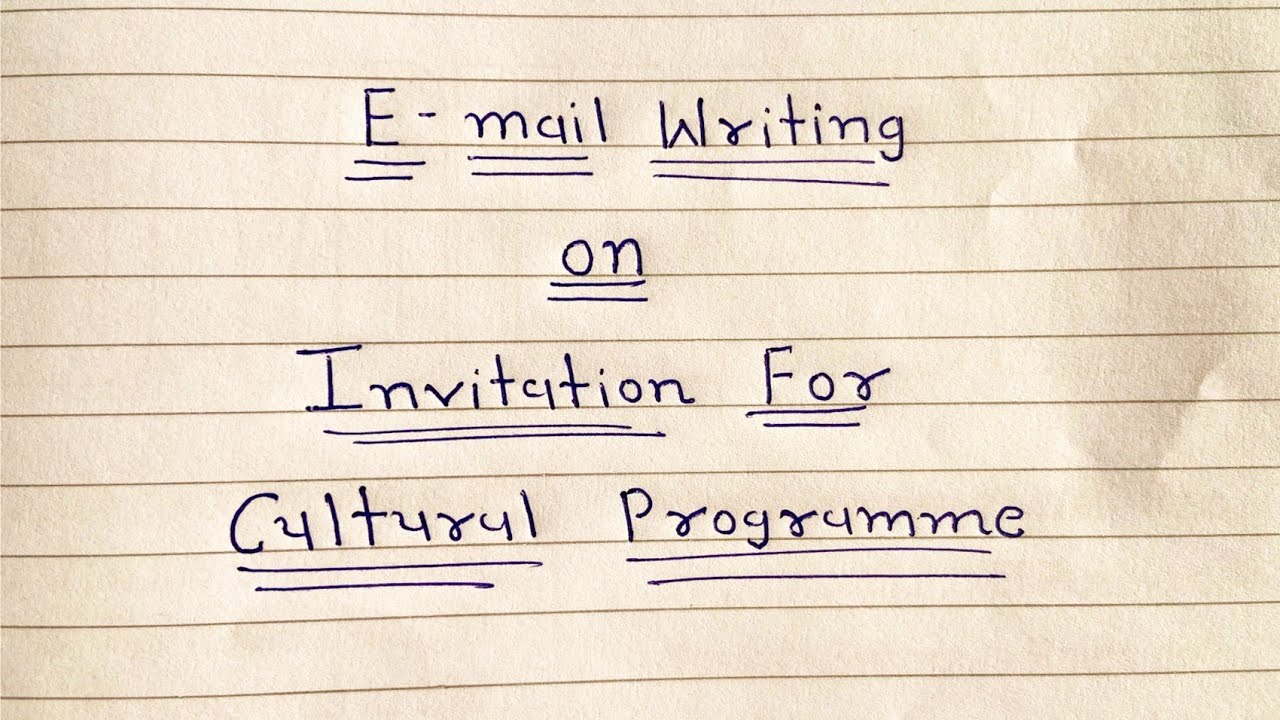 E-mail Writing
on
Invitation For
Cultural Programme